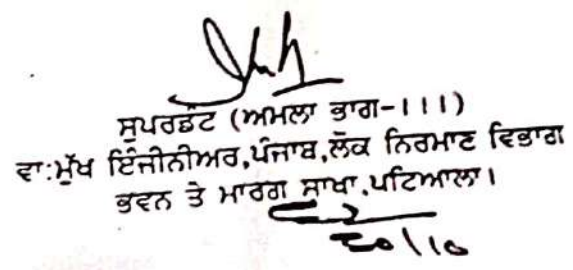 ਸੁਪਰਡੰਟ (ਅਮਲਾ ਭਾਗ-III)
ਵਾ:ਮੁੱਖ ਇੰਜੀਨੀਅਰ,ਪੰਜਾਬ,ਲੋਕ ਨਿਰਮਾਣ ਵਿਭਾਗ
ਭਵਨ ਤੇ ਮਾਰਗ ਸਾਖਾ,ਪਟਿਆਲਾ।